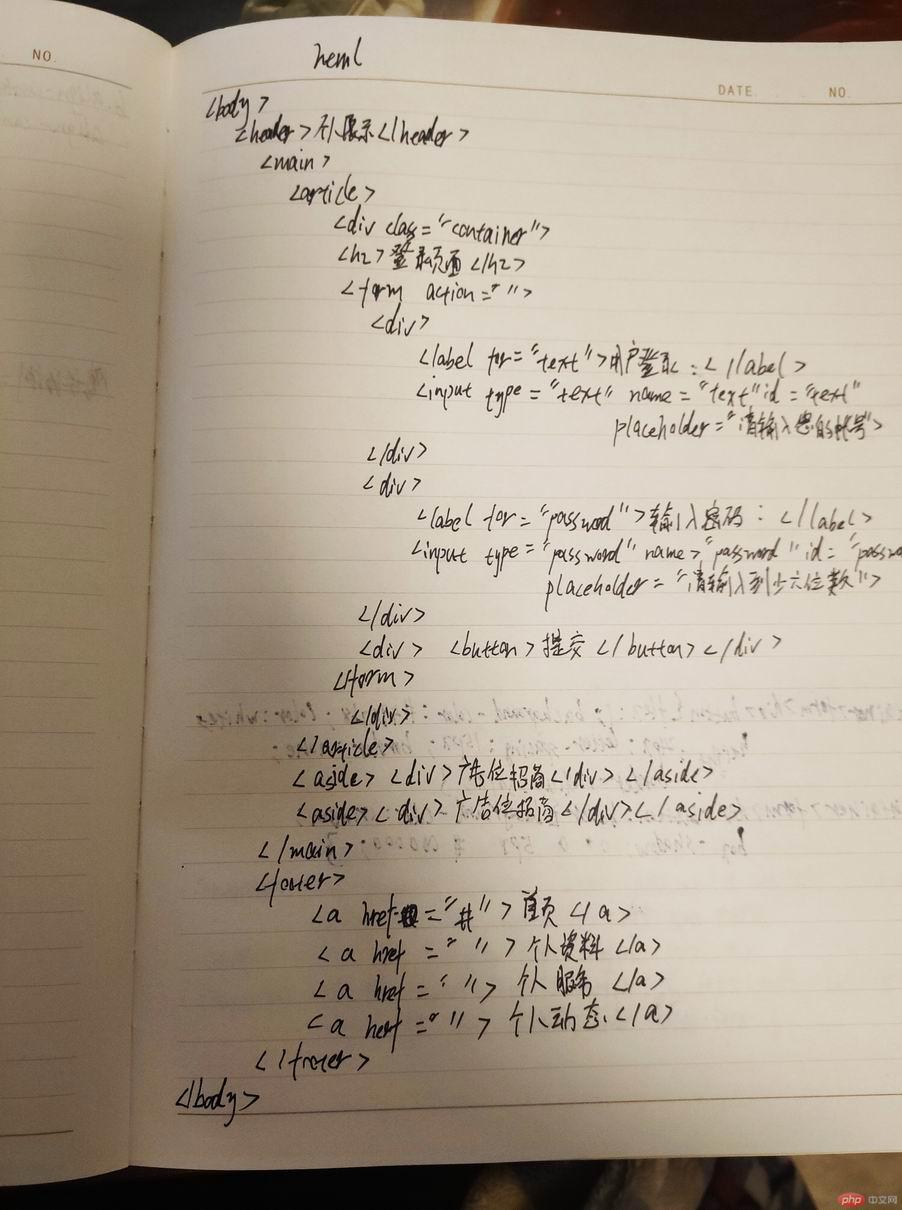 NO.
DATE NO.
heml
<body>
<header>个人展示</header>
<main>
<article>
<div class="container">
<h2>登录页面</h2>
<form action="">
<div>
<label for="text">用户登录:</label>
<input type="text" name="text" id="text"
placeholder="请输入您的帐号>
</div>
<div>
<label for="password">输入密码:</label>
<input type="password" name="password" id="passwo
placeholder="请输入到少六位数">
</div>
<div> <button>提交</button></div>
</form>
</div>
</article>
<aside> <div>广告位招商</div> </aside>
<aside><div>广告位招商</div></aside>
</main>
<footer>
<a href="#">首页</a>
<a href="">个人资料</a>
<a href="">个人服务</a>
<a herf="">个人动态</a>
</footer>
</body>
php 中文网